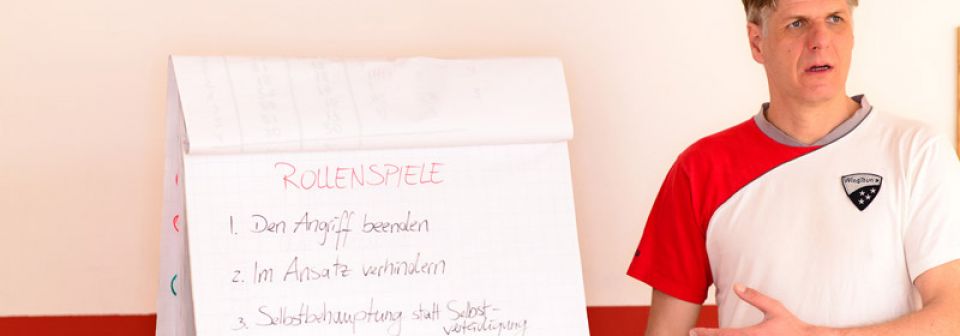 ROLLENSPIELE
1. Den Angriff beenden
2. Im Ansatz verhindern
3. Selbstbehauptung statt Selbst-
verteidigung
WingTsun